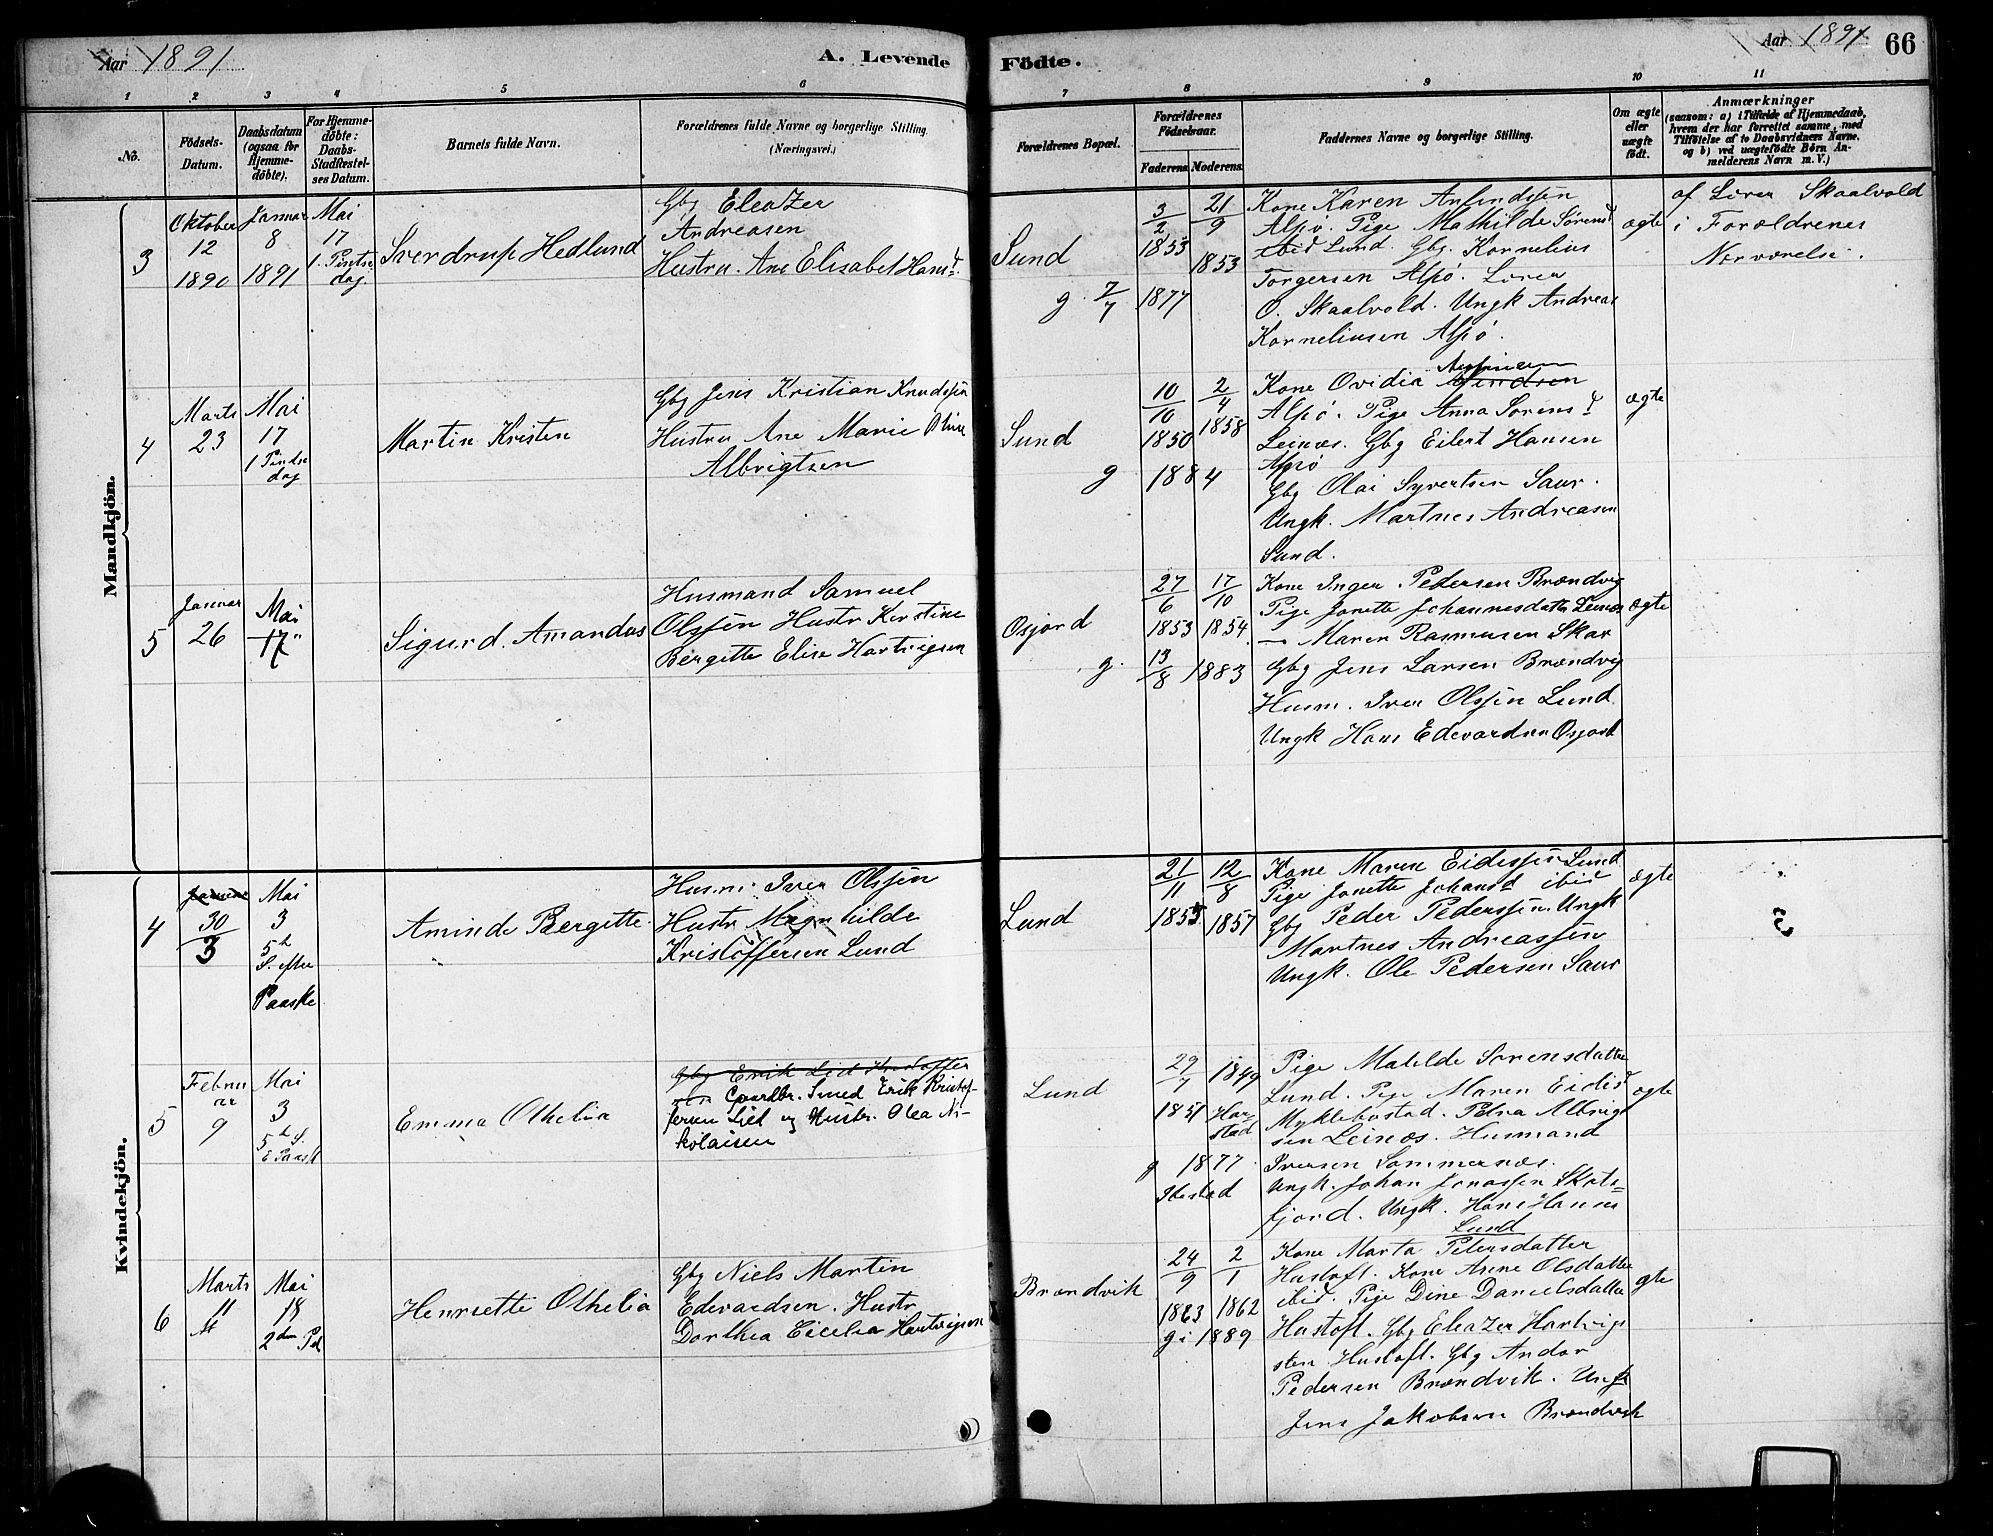 Aar 1891
A. Levende Födte.
Aar 1891
66
1 2 3 4 5 6 7 8 9 10 11
No.
Födsels-Datum.
Daabsdatum (ogsaa for Hjemme-döbte).
For Hjemme-döbte: Daabs-Stadfæstel-ses Datum.
Barnets fulde Navn.
Forældrenes fulde Navne og borgerlige Stilling.
(Næringsvei.)
Forældrenes Bopæl.
Forældrenes Födselsaar.
Faderens. Moderens.
Faddernes Navne og borgerlige Stilling.
Om ægte eller uægte födt.
Anmærkninger
(saasom: a) i Tilfælde af Hjemmedaab,
hvem der har forrettet samme, med
Tilföielse af to Daabsvidners Navne.
og b) ved uægtefödte Börn An-
melderens Navn m. V.)
Mandkjön.
3
Oktober
12
1890
Januar
8
1891
Mai
17
1. Pintse
dag.
Sverdrup Hedlund
Gbg Eleazer
Andreasen
Hustru. Ane Elisabet Hansd.
Sund
3/2 1853
21/9 1853
g. 7/7 1877
Kone Karen
Alsø. Pige Mathilde Sørensd
ibid Lund. Gbg. Kornelius
Torgersen Alsø. Lærer
O. Skaalvold. Ungk Andreas
Korneliusen Alsø.
ægte
af Lærer Skaalvold
i Forældrenes
Nærværelse.
4
Marts
23
Mai
17
1 Pindse
dag
Martin Kristen
Gbg Jens Kristian Knudssen
Hustru Ane Marie
Albrigtsen
Sund
10/10 1850
2/4 1858
g 1884
Kone Ovidia
Alsø. Pige Anna Sørensd
Leinæs. Gbg Eilert Hansen
Alsø
Gbg Olai Syvertsen Saur.
Ungk. Martnes Andreasen
Sund.
ægte
5
Januar
26
Mai
17"
Sigurd. Amandus
Husmand Samuel
Olssen Hustr Kerstine
Bergitte Elise Hartvigsen
Osjord
27/6 1853
17/10 1854.
g. 13/8 1883
Kone Inger. Pedersen Brændvig
Pige Janette Johannesdatter Leinæs
— Maren Rasmusen Skar
Gbg Jens Larsen Brændvig
Husm. Iver Olssen Lund
Ungk Hans Edevardsen Osjord
ægte
Kvindekjön.
4
Januar
30
3
Mai
3
5h
S. efter
Paaske
Aminda Bergitte.
Husm. Iver Olssen
Hustr Magnhilde
Kristoffersen Lund
Lund
21/11 1855
12/8 1857
Kone Maren Eidissen Lund
Pige Janette Johansd ibid
Gbg Peder Pederssen. Ungk
Martnes Andreassen
Ungk. Ole Pedersen Saur
ægte
5
Februar
9
Mai
3
5h S.
E Paask
Emma Othelia
Gbg Erik Lid Kristoffer
sen Gaardbr. Smed Erik Kristof-
fersen Lid og Hustr. Olea Ni-
kolaisen
Lund
29/7 1851
1849
Har-
stad
g 1877
Ibestad
Pige Matilde Sørensdatter
Lund. Pige Maren Eidisd
Myklebostad. Petra Albrigt
sen Leinæs. Husmand
Iversen Sommernæs.
Ungk. Johan Jonassen Skots-
fjord. Ungk. Hans Hansen
Lund
ægte
6
Marts
11
Mai
18
2den Pd
Henriette Othelia
Gbg Niels Martin
Edevardsen. Hustr
Dorthea Cicelia Hartvigsen
Brændvik
24/9 1863
2/1 1862
g i 1889
Kone Marta Petersdatter
Hustoft. Kone Anne Olsdatter
ibid. Pige Dine Danielsdatter
Hustoft. Gbg Eleazer Hartvig
sen Hustoft. Gbg Andor
Pedersen Brændvik. Ungk
Jens Jakobsen Brændvik
ægte